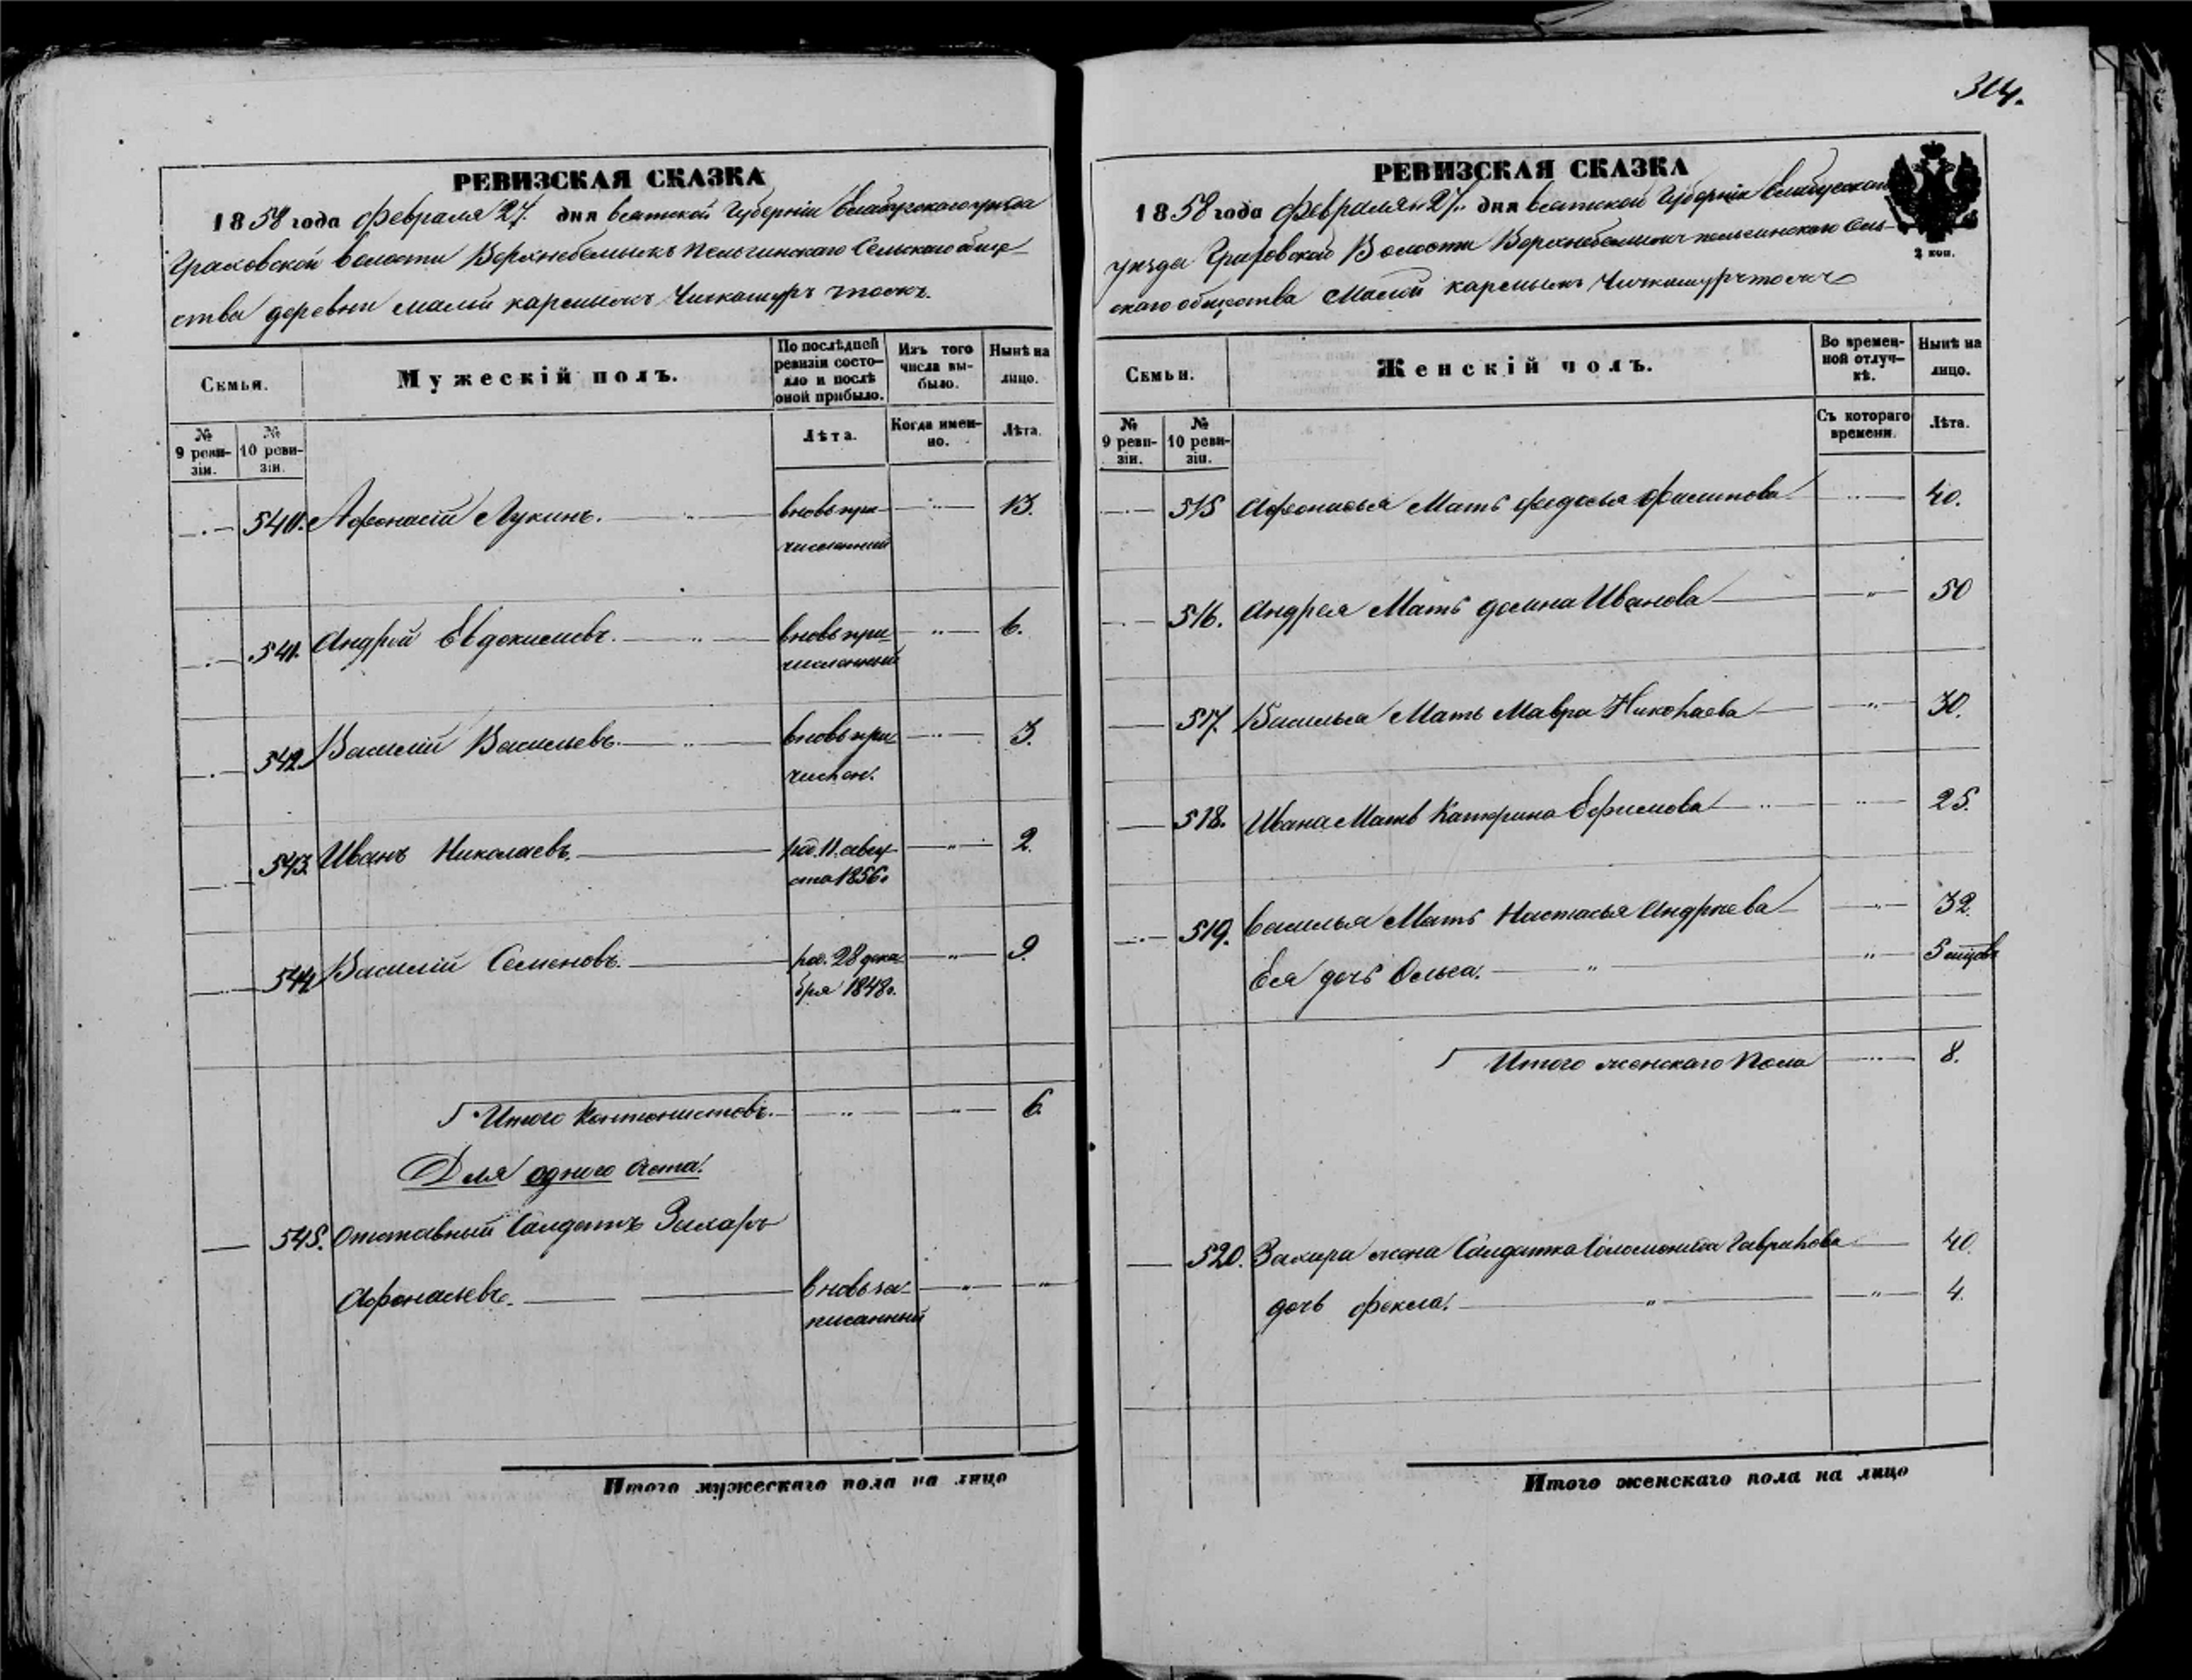 304.
РЕВИЗСКАЯ СКАЗКА
1858 года Февраля 27. дня Вятской Губерніи Елабугскаго уѣзда
Граховской волости Верхнебемыжъ Пельгинскаго Сельскаго обще-
ства деревни малой кармыжъ Чичкашуръ тожъ.
Семьи.
Мужескій полъ.
По послѣдней ревизіи состо-
яло и послѣ оной прибыло.
Изъ того числа вы-
было.
Нынѣ на лицо.
№ 9 реви-
зіи.
№ 10 реви-
зіи.
Лѣта.
Когда имен-
но.
Лѣта.
540. Афонасій Лукинъ. вновь при- 13.
численный
541. Андрей Евдокимовъ. вновь при- 6.
численный
542 Василій Васильевъ. вновь при- 3.
числен.
543. Иванъ Николаевъ. род. 11. авгу- 2.
ста 1856.
544 Василій Семеновъ. род. 28 дека- 9.
бря 1848г.
Итого Кантонистовъ. 6.
Для одного счета.
545. Отставный Салдатъ Захаръ
Афонасьевъ. вновь за-
писанный
Итого мужескаго пола на лицо
РЕВИЗСКАЯ СКАЗКА
1858 года Февраля 27. дня Вятской Губерніи Елабугскаго
уѣзда Граховской Волости Верхнебемыжъ пельгинскаго Сель-
скаго общества Малой кармыжъ Чичкашуръ тожъ
2 коп.
Семьи.
Женскій полъ.
Во времен-
ной отлуч-
кѣ.
Нынѣ на лицо.
№ 9 реви-
зіи.
№ 10 реви-
зіи.
Съ котораго времени.
Лѣта.
515 Афонасья Мать Федосья Филипова 40.
516. Андрея Мать домна Иванова 50
517. Василья Мать Мавра Николаева 30.
518. Ивана Мать Катерина Ефимова 25.
519. Василья Мать Настасья Андреева 32.
Ея дочь Ольга. 5
Итого женскаго Пола 8.
520. Захара жена Салдатка Соломонида Гаврилова 40.
дочь Фекла. 4.
Итого женскаго пола на лицо